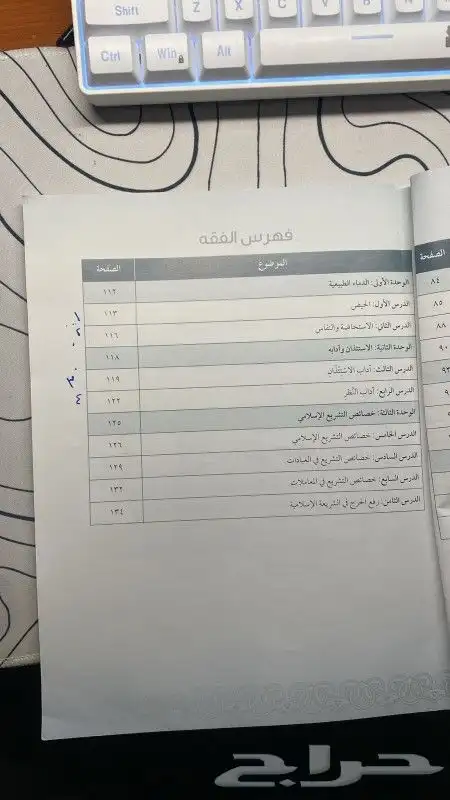 Shift Z X C V B N
Ctrl Win Alt
فهرس الفقه
الموضوع الصفحة
الوحدة الأولى: الدماء الطبيعية ١١٢
الدرس الأول: الحيض ١١٣
الدرس الثاني: الاستحاضة والنفاس ١١٦
الوحدة الثانية: الاستئذان وآدابه ١١٨
الدرس الثالث: آداب الاستئذان ١١٩
الدرس الرابع: آداب النظر ١٢٢
الوحدة الثالثة: خصائص التشريع الإسلامي ١٢٥
الدرس الخامس: خصائص التشريع الإسلامي ١٢٦
الدرس السادس: خصائص التشريع في العبادات ١٢٩
الدرس السابع: خصائص التشريع في المعاملات ١٣٢
الدرس الثامن: رفع الحرج في الشريعة الإسلامية ١٣٤
١
٢
٣
٤
الصفحة
٨٤
٨٥
٨٨
٩٠
حراج